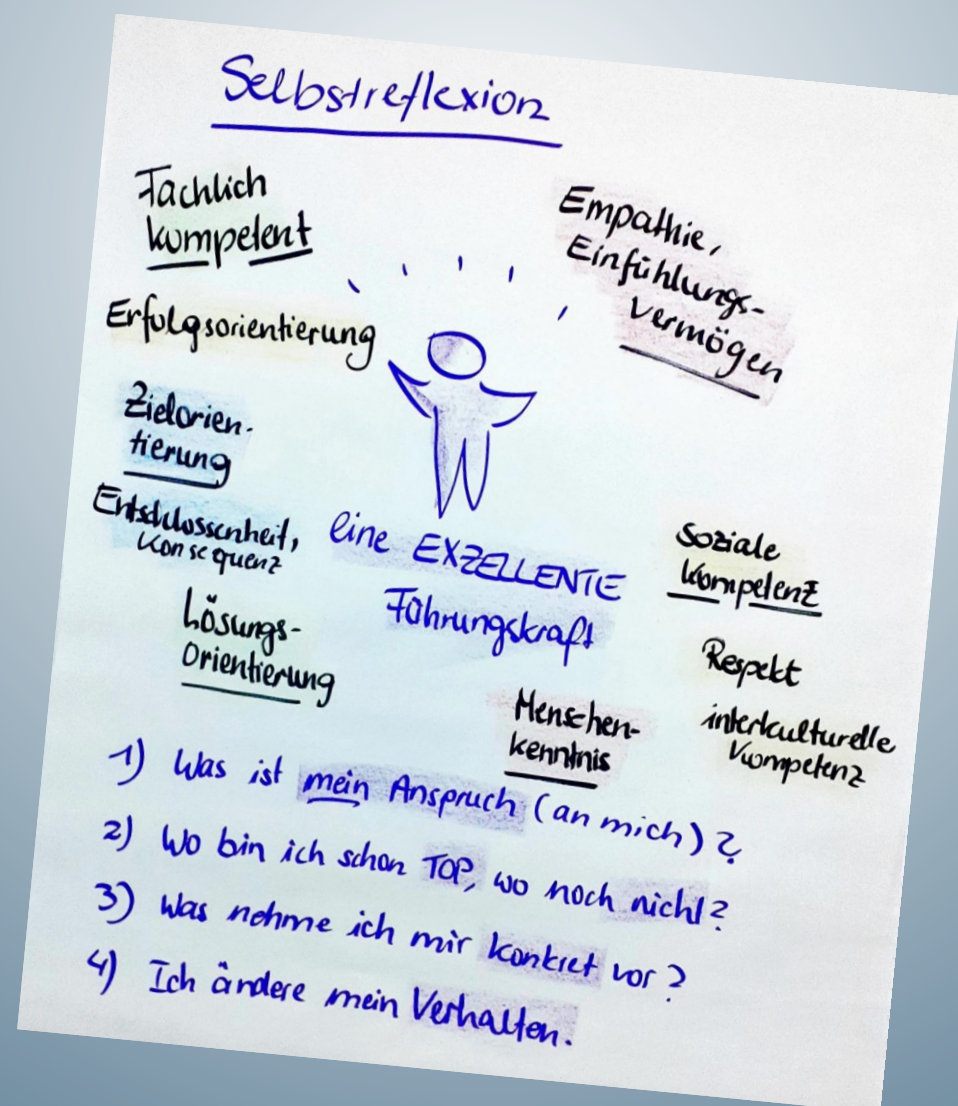 Selbstreflexion
Fachlich
kompetent
Empathie,
Einfühlungs-
vermögen
Erfolgsorientierung
Zielorien-
tierung
Entschlossenheit,
Konsequenz
eine EXZELLENTE
Führungskraft
Soziale
Kompetenz
Lösungs-
Orientierung
Respekt
Menschen-
kenntnis
interkulturelle
Kompetenz
1) Was ist mein Anspruch (an mich)?
2) Wo bin ich schon TOP, wo noch nicht?
3) Was nehme ich mir konkret vor?
4) Ich ändere mein Verhalten.